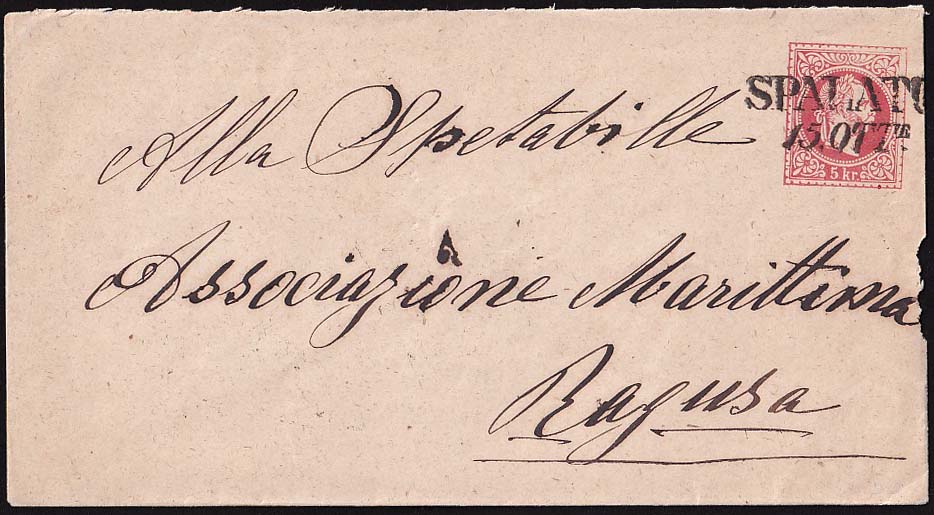 SPALATO
15. OTTR.
5 kr.
Alla Spetabille
Associazione Marittima
Ragusa